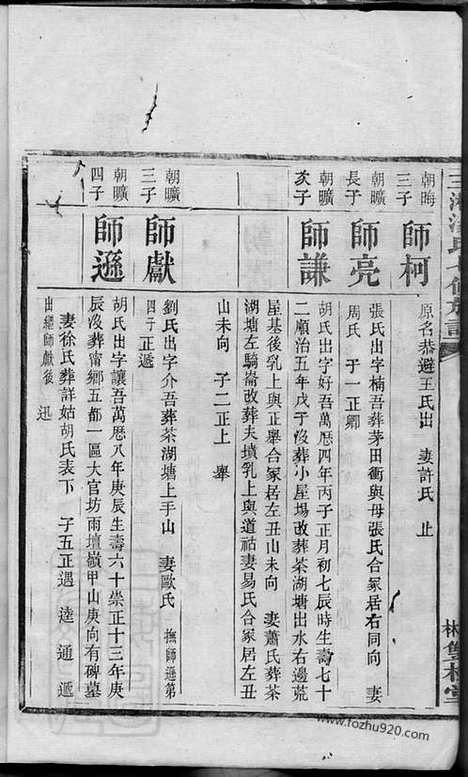 朝晦
三子
師柯
原名恭避王氏出 妻許氏 止
朝曠
長子
師亮
張氏出字楠吾葬茅田衝與母張氏合冢居右同向 妻
周氏 子一正卿
朝曠
次子
師謙
胡氏出字好吾萬厯四年丙子正月初七辰時生壽七十
二順治五年戊子沒葬小屋場改葬茶湖塘出水右邊荒
屋基後乳上與正舉合冢居左丑山未向 妻蕭氏葬茶
湖塘左騎崙改葬夫墳乳上與道祜妻易氏合冢居左丑
山未向 子二正上 舉
朝曠
三子
師獻
劉氏出字介吾葬茶湖塘上手山 妻歐氏 撫師遜第
四子正遞
朝曠
四子
師遜
胡氏出字讓吾萬厯八年庚辰生壽六十崇正十三年庚
辰沒葬甯鄉五都一區大官坊雨壇嶺甲山庚向有碑墓
妻徐氏葬詳姑胡氏表下 子五正遇 逵 通 遞
出繼師獻後 迅
www.fozhu920.com